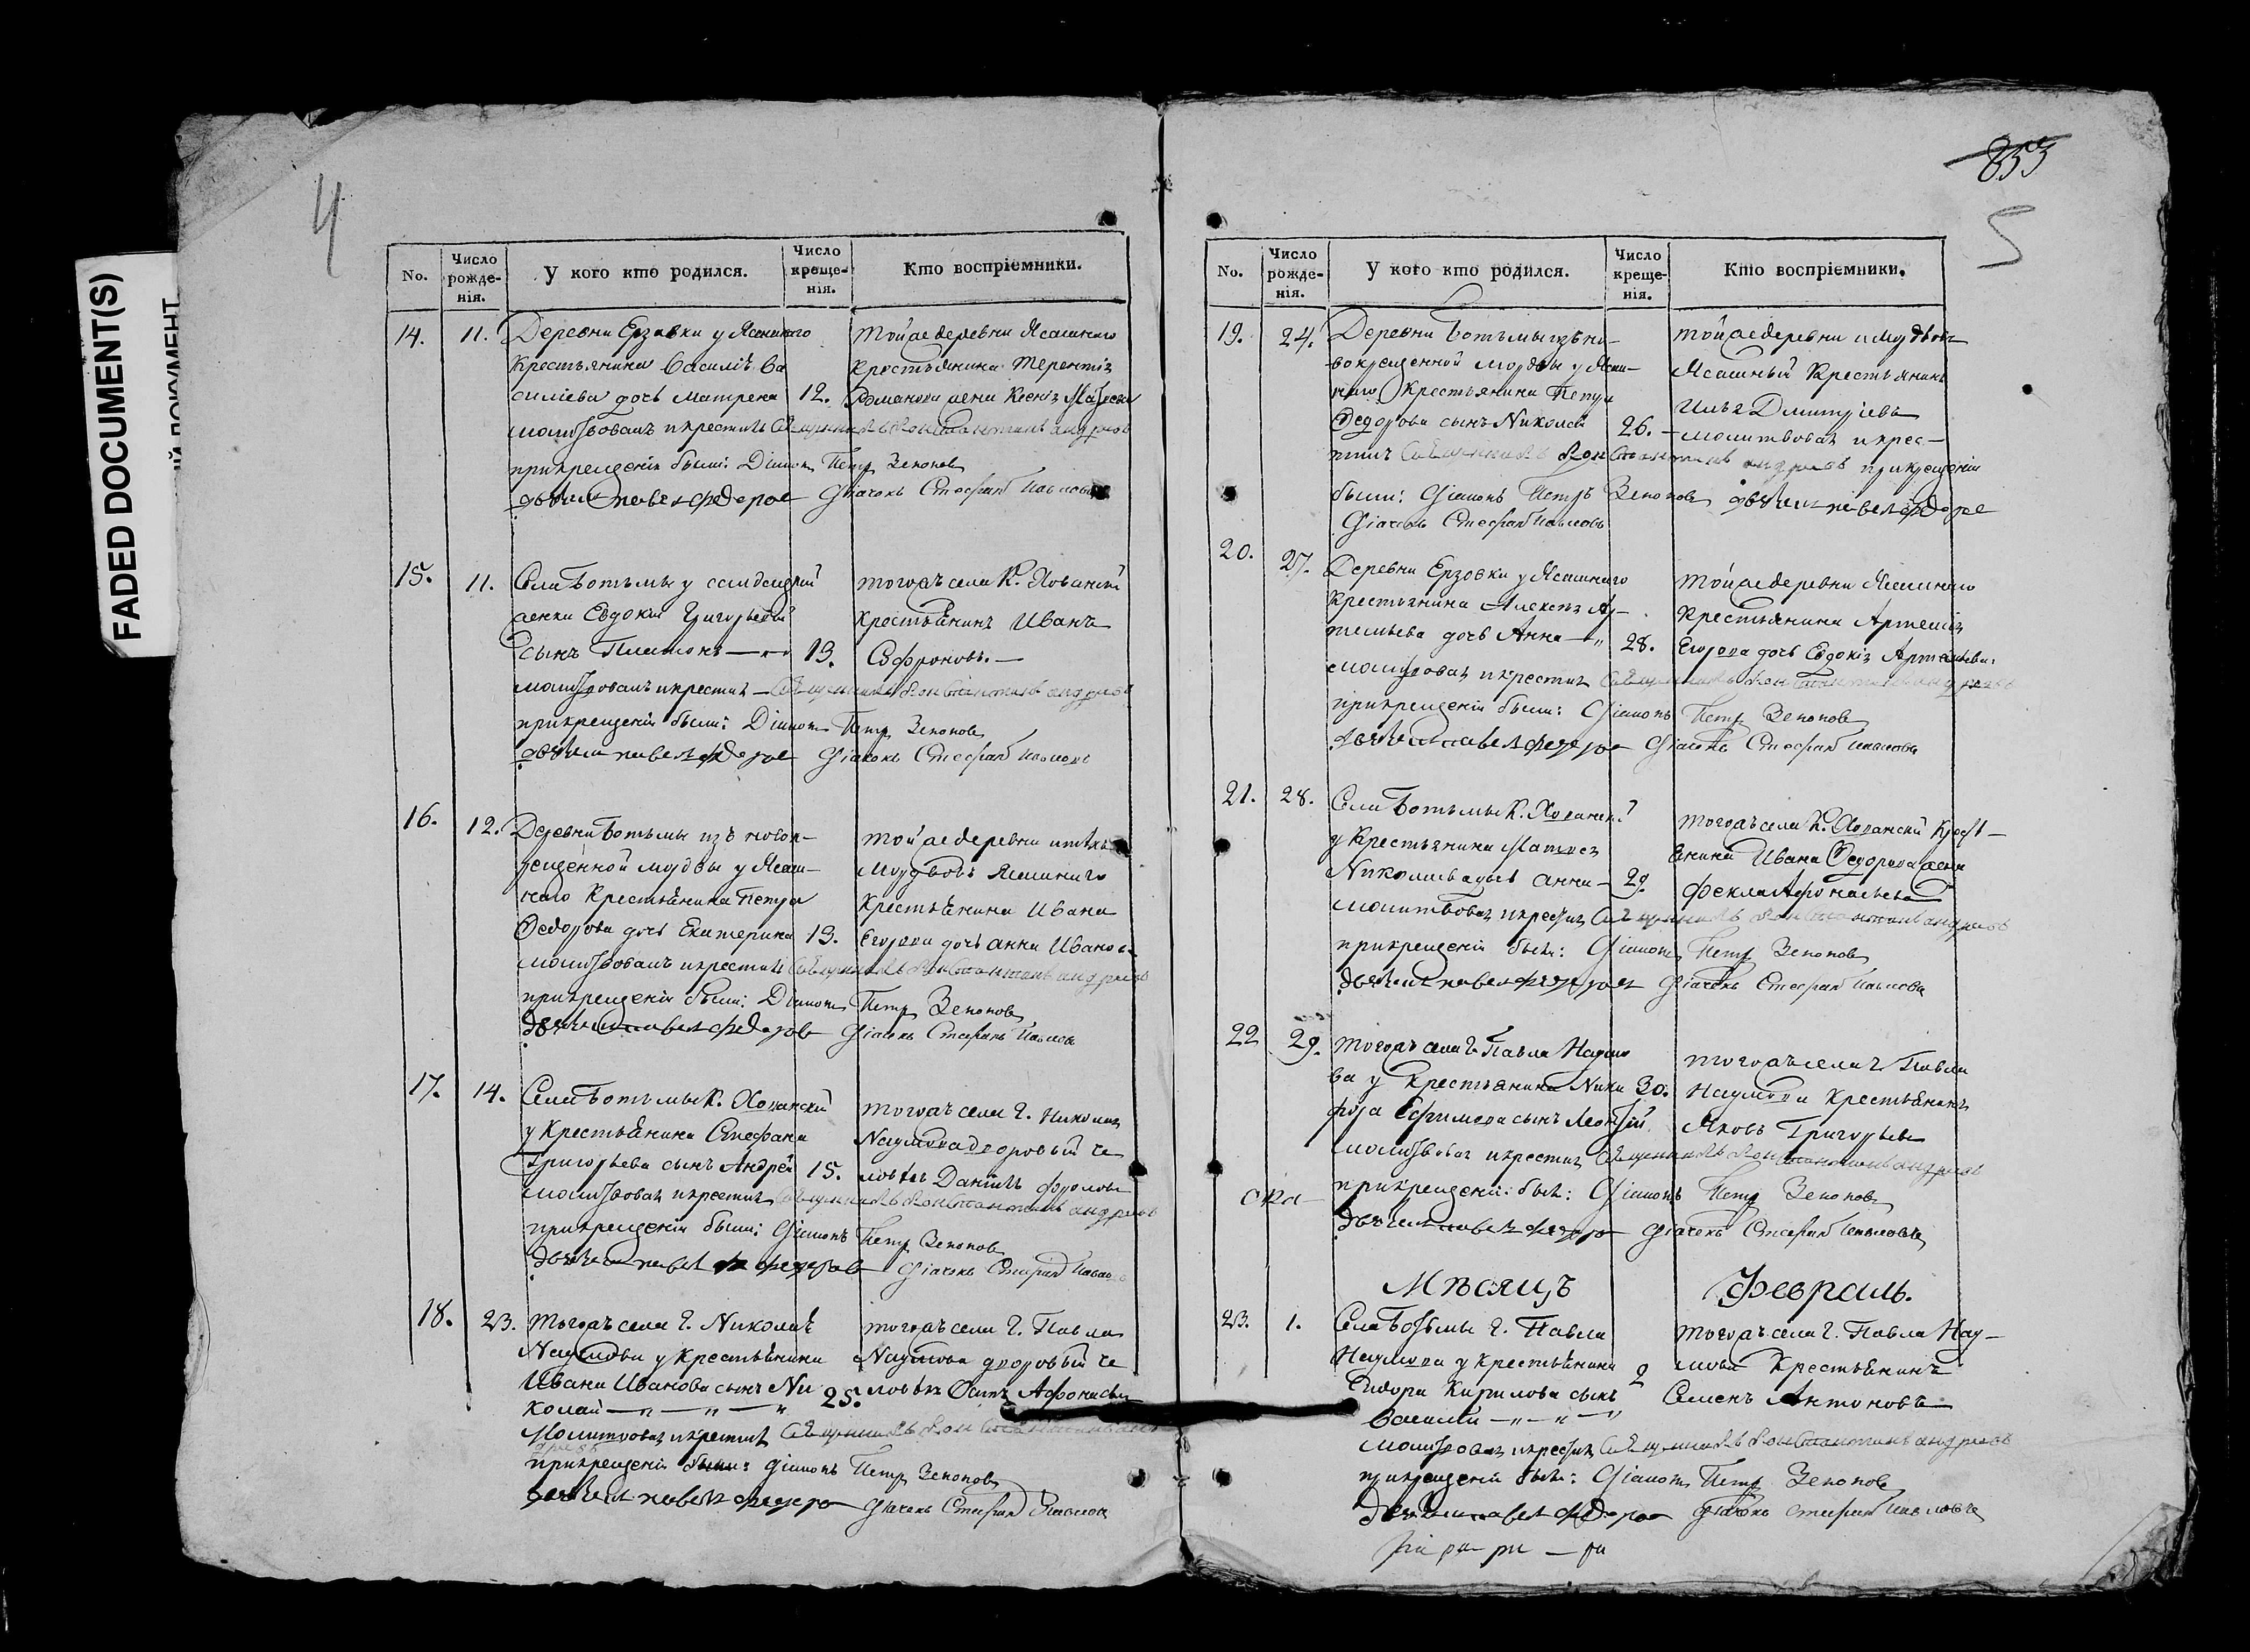 FADED DOCUMENT(S)
4
853
5
No.
Число рожденія.
У кого кто родился.
Число крещенія.
Кто воспріемники.
14. 11. Деревни Ерзовки у Ясашного
крестьянина Василія Ва
силіева дочь Матрена 12.
молитвовалъ и крестилъ Священникъ Константинъ Андреевъ
при крещеніи были: Діаконъ Петръ Зеноновъ
Дьячекъ Павелъ Федоровъ Дьячекъ Стефанъ Павловъ
Той же деревни Ясашного
крестьянина Терентія
Романова жена Ксенія
15. 11. Села Ботьмы у солдатской
женки Евдокіи Григорьевой
сынъ Платонъ 13.
молитвовалъ и крестилъ Священникъ Константинъ Андреевъ
при крещеніи были: Діаконъ Петръ Зеноновъ
Дьячекъ Павелъ Федоровъ Дьячекъ Стефанъ Павловъ
Того жъ села К. Хованской
крестьянинъ Иванъ
Софроновъ.
16. 12. Деревни Ботьмы изъ новок-
рещенной мордвы у Ясаш-
наго Крестьянина Петра
Федорова дочь Екатерина 13.
молитвовалъ и крестилъ Священникъ Константинъ Андреевъ
при крещеніи были: Діаконъ Петръ Зеноновъ
Дьячекъ Павелъ Федоровъ Дьячекъ Стефанъ Павловъ
Той же деревни
Мордвовъ Ясашнаго
Крестьянина Ивана
Егорова дочь Анна Иванова
17. 14. Села Ботьмы К. Хованской
у Крестьянина Стефана
Григорьева сынъ Андрей 15.
молитвовалъ и крестилъ Священникъ Константинъ Андреевъ
при крещеніи были: Діаконъ Петръ Зеноновъ
Дьячекъ Павелъ Федоровъ Дьячекъ Стефанъ Павловъ
Того жъ села Г. Николая
Наумова дворовый че
ловѣкъ Даніилъ Фроловъ
18. 23. Того жъ села Г. Николая
Наумова у Крестьянина
Ивана Иванова сынъ Ни 25.
колай
Молитвовалъ и крестилъ Священникъ Константинъ Ан
дреевъ
при крещеніи были: Діаконъ Петръ Зеноновъ
Дьячекъ Павелъ Федоровъ Дьячекъ Стефанъ Павловъ
Того жъ села Г. Павла
Наумова дворовый че
ловѣкъ Осипъ Афонасьевъ
No.
Число рожденія.
У кого кто родился.
Число крещенія.
Кто воспріемники.
19. 24. Деревни Ботьмы изъ но-
вокрещенной мордвы у Ясаш-
наго Крестьянина Петра
Федорова сынъ Николай 26.
Той же деревни изъ Мордвовъ
Ясашный Крестьянинъ
Илья Дмитріевъ
молитвовалъ и крес-
тилъ Священникъ Константинъ Андреевъ при крещеніи
были: Діаконъ Петръ Зеноновъ Дьячекъ Павелъ Федоровъ
Дьячекъ Стефанъ Павловъ
20. 27. Деревни Ерзовки у Ясашнаго
Крестьянина Алексѣя Ар-
темьева дочь Анна 28.
молитвовалъ и крестилъ Священникъ Константинъ Андреевъ
при крещеніи были: Діаконъ Петръ Зеноновъ
Дьячекъ Павелъ Федоровъ Дьячекъ Стефанъ Павловъ
Той же деревни Ясашнаго
Крестьянина Артемія
Егорова дочь Евдокія Артемьева
21. 28. Села Ботьмы К. Хованской
у Крестьянина Матвея
Николаева дочь Анна 29.
молитвовалъ и крестилъ Священникъ Константинъ Андреевъ
при крещеніи были: Діаконъ Петръ Зеноновъ
Дьячекъ Павелъ Федоровъ Дьячекъ Стефанъ Павловъ
Того жъ села К. Хованской Крест-
янина Ивана Федорова жена
Фекла Афонасьева
22 29. Того жъ села Г. Павла Наумо
ва у Крестьянина Ники 30.
фора Ефимова сынъ Леонтій
молитвовалъ и крестилъ Священникъ Константинъ Андреевъ
при крещеніи были: Діаконъ Петръ Зеноновъ
Дьячекъ Павелъ Федоровъ Дьячекъ Стефанъ Павловъ
Того жъ села Г. Павла
Наумова Крестьянинъ
Яковъ Григорьевъ
Мѣсяцъ Февраль.
23. 1. Села Ботьмы Г. Павла
Наумова у Крестьянина 2
Сидора Кирилова сынъ
Василій
молитвовалъ и крестилъ Священникъ Константинъ Андреевъ
при крещеніи были: Діаконъ Петръ Зеноновъ
Дьячекъ Павелъ Федоровъ Дьячекъ Стефанъ Павловъ
Того жъ села Г. Павла Нау-
мова Крестьянинъ
Семенъ Антоновъ